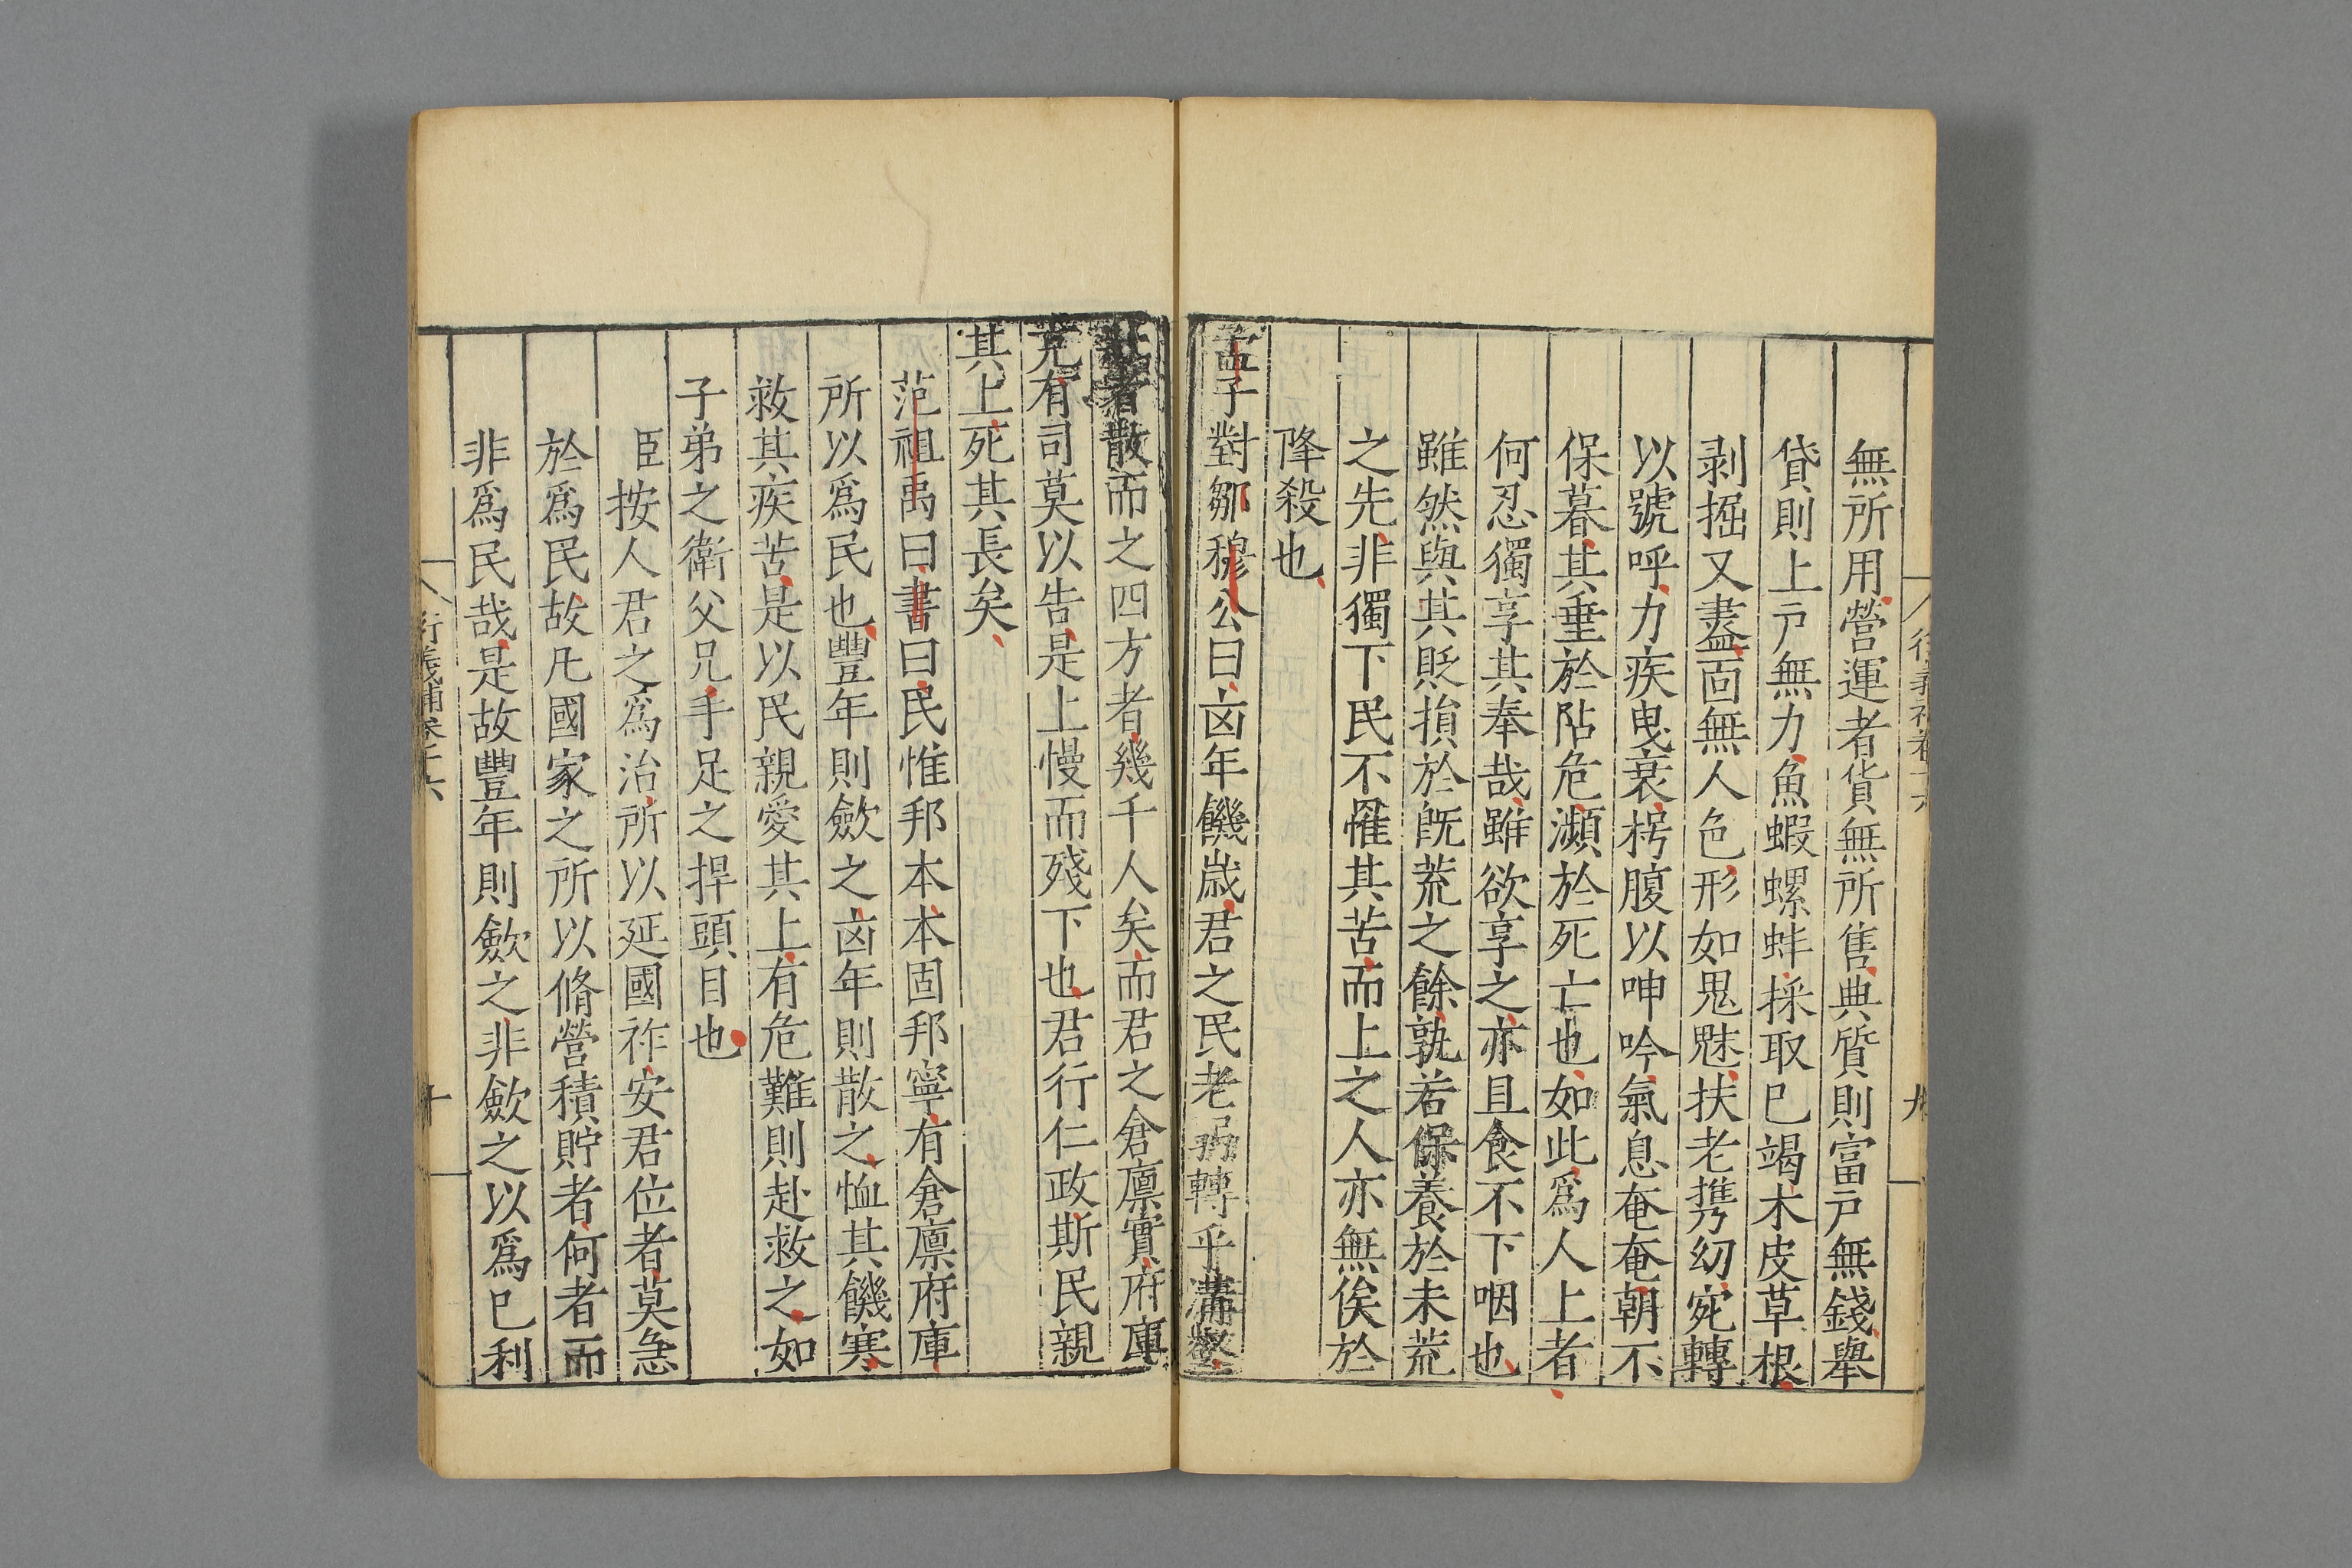 無所用營運者貨無所售典質則富戸無錢舉
貸則上戸無力魚蝦螺蚌採取巳竭木皮草根
剥掘又盡面無人色形如鬼魅扶老携㓜宛轉
以號呼力疾曳衰枵腹以呻吟氣息奄奄朝不
保暮其垂於阽危瀕於死亡也如此爲人上者
何忍獨享其奉哉雖欲享之亦且食不下咽也
雖然與其貶損於旣荒之餘孰若保養於未荒
之先非獨下民不罹其苦而上之人亦無俟於
降殺也
孟子對鄒穆公曰凶年饑歲君之民老弱轉乎溝壑
壯者散而之四方者幾千人矣而君之倉廪實府庫
充有司莫以告是上慢而殘下也君行仁政斯民親
其上死其長矣
范祖禹曰書曰民惟邦本本固邦寧有倉廪府庫
所以爲民也豐年則斂之凶年則散之恤其饑寒
救其疾苦是以民親愛其上有危難則赴救之如
子弟之衛父兄手足之捍頭目也
臣按人君之爲治所以延國祚安君位者莫急
於爲民故凡國家之所以脩營積貯者何者而
非爲民哉是故豐年則斂之非斂之以爲巳利
衍義補卷十六
十